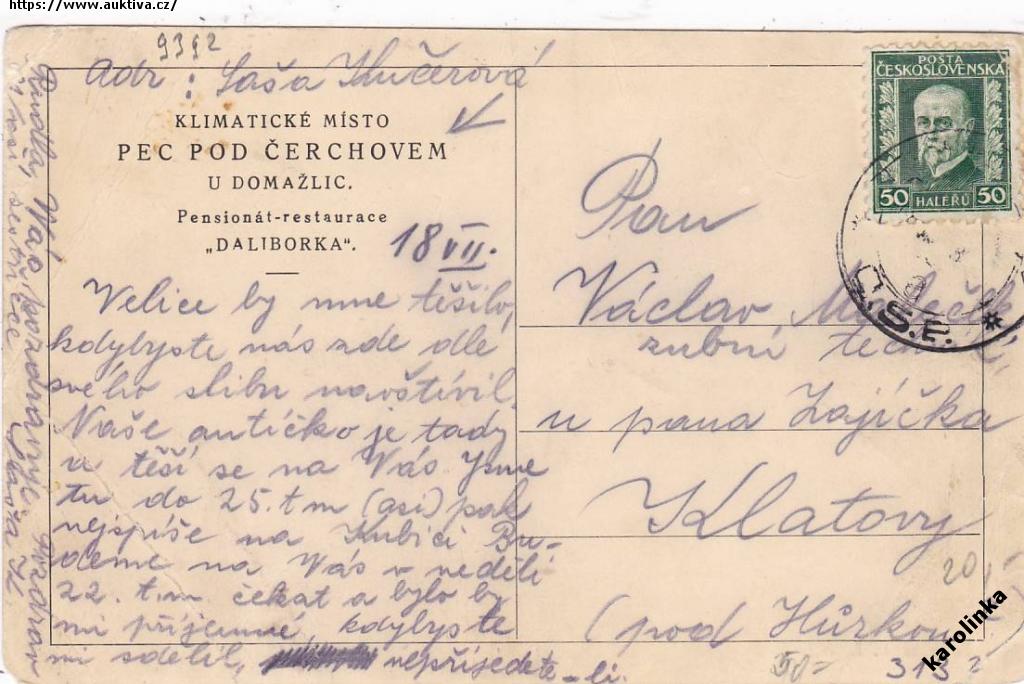 https://www.auktiva.cz/
9392
adr : Saša Kučerová
KLIMATICKÉ MÍSTO
PEC POD ČERCHOVEM
U DOMAŽLIC.
Pensionát-restaurace
„DALIBORKA".
18 VII.
Velice by mne těšilo,
kdybyste nás zde dle
svého slibu navštívil.
Naše autíčko je tady
a těší se na Vás Jsme
tu do 25. t m (asi) pak
nejspíše na Kubici Bu-
deme na Vás v neděli
22. t.m. čekat a bylo by
mi příjemné, kdybyste
mi sdělil, nepřijedete-li.
pozdravuje
sestřenc
POŠTA
ČESKOSLOVENSKA
50 HALÉŘŮ 50
Č.S.E. *
Pan
Václav
zubní
u pana Zajíčka
Klatovy
(pod Hůrkou)
20,-
50-
315
karolinka